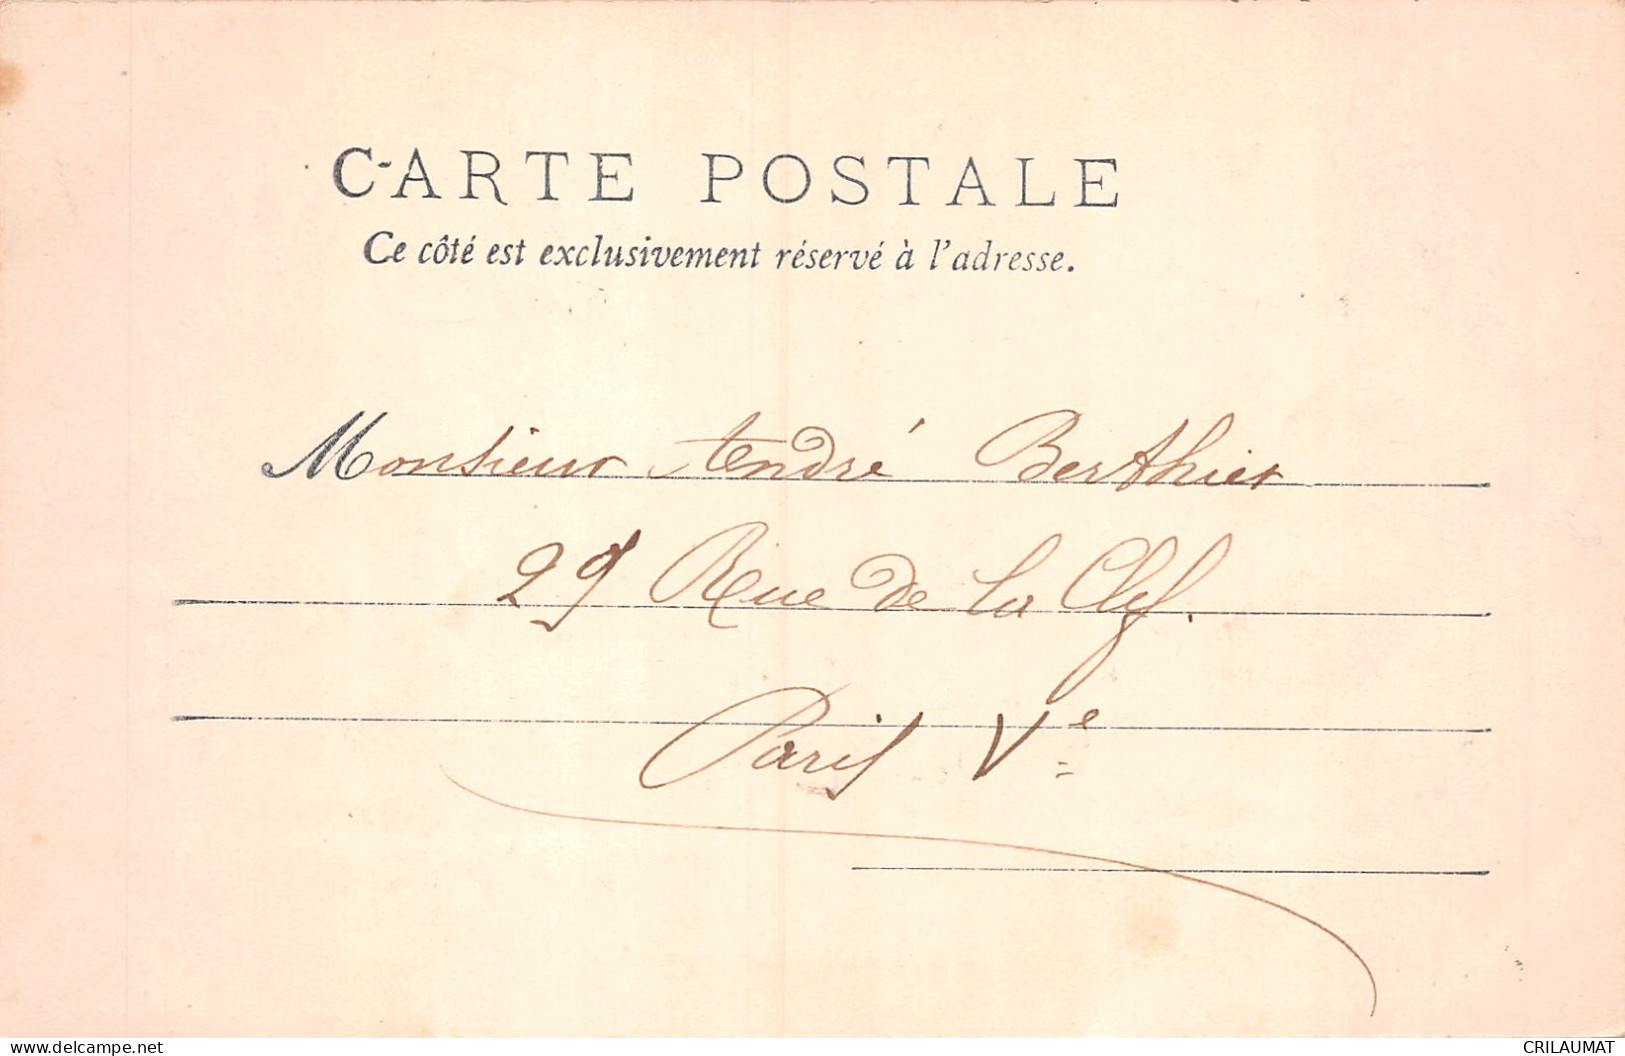 CARTE POSTALE
Ce côté est exclusivement réservé à l'adresse.
Monsieur André Berthier
29 Rue de la Clef.
Paris Ve
www.delcampe.net
CRILAUMAT